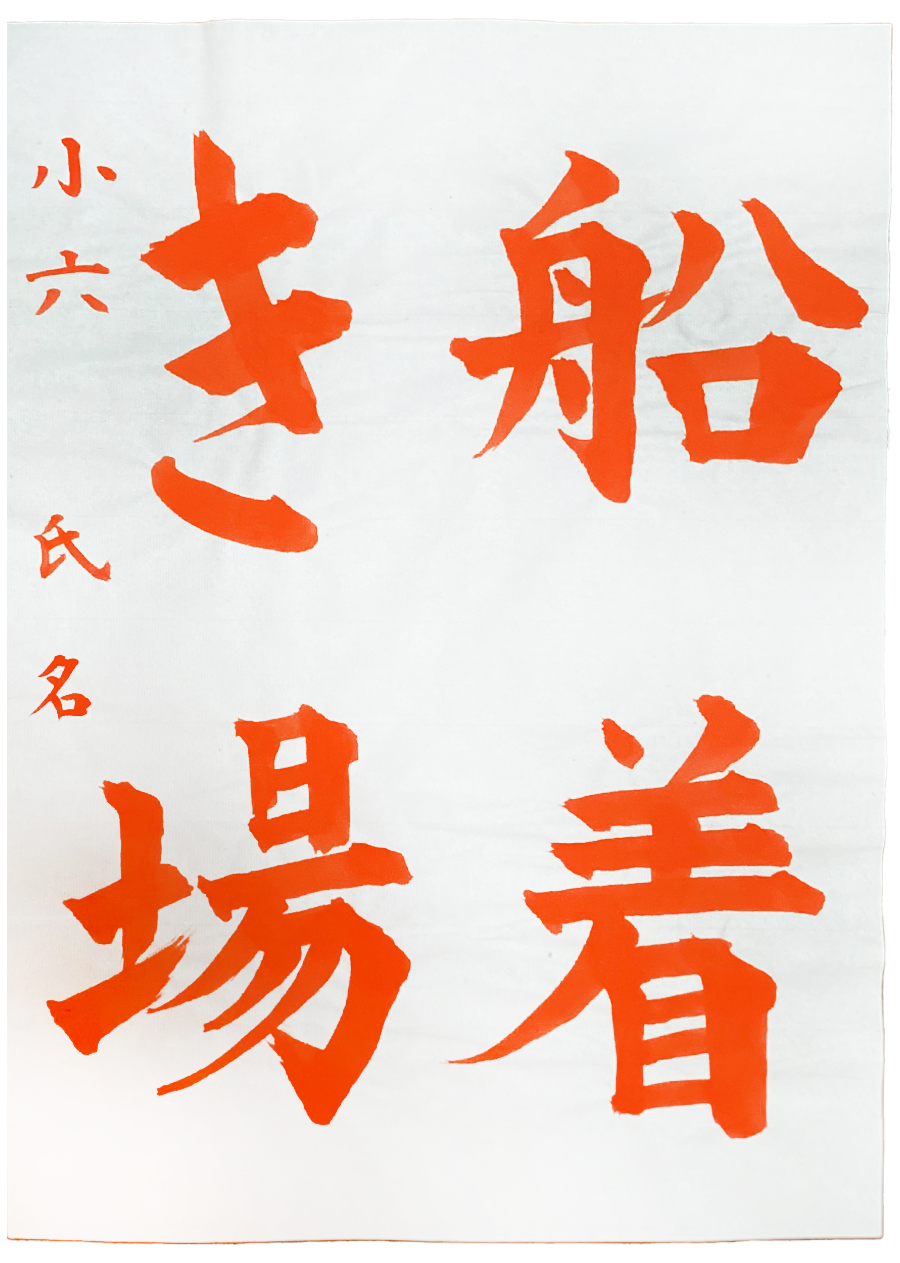 船着
き場
小六 氏名